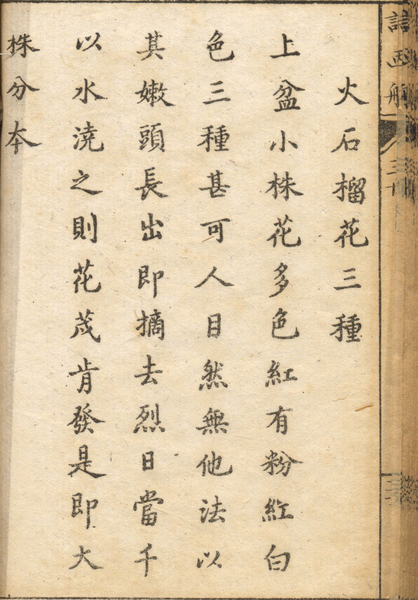 火石榴花三種
上盆小株花多色紅有粉紅白
色三種甚可人目然無他法以
其嫩頭長出即摘去烈日當千
以水澆之則花茂肯發是即大
株分本